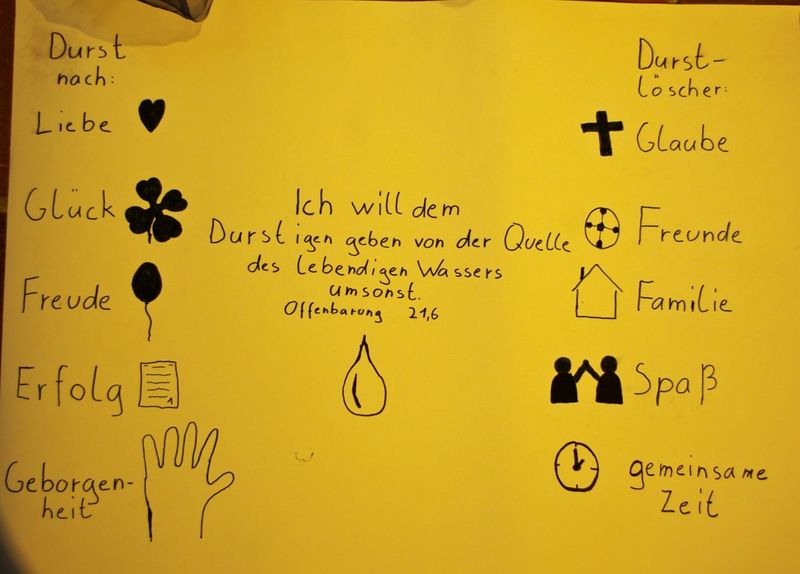 Durst
nach:
Liebe
Glück
Freude
Erfolg
Geborgen-
heit
Ich will dem
Durstigen geben von der Quelle
des lebendigen Wassers
umsonst.
Offenbarung 21,6
Durst-
löscher:
Glaube
Freunde
Familie
Spaß
gemeinsame
Zeit